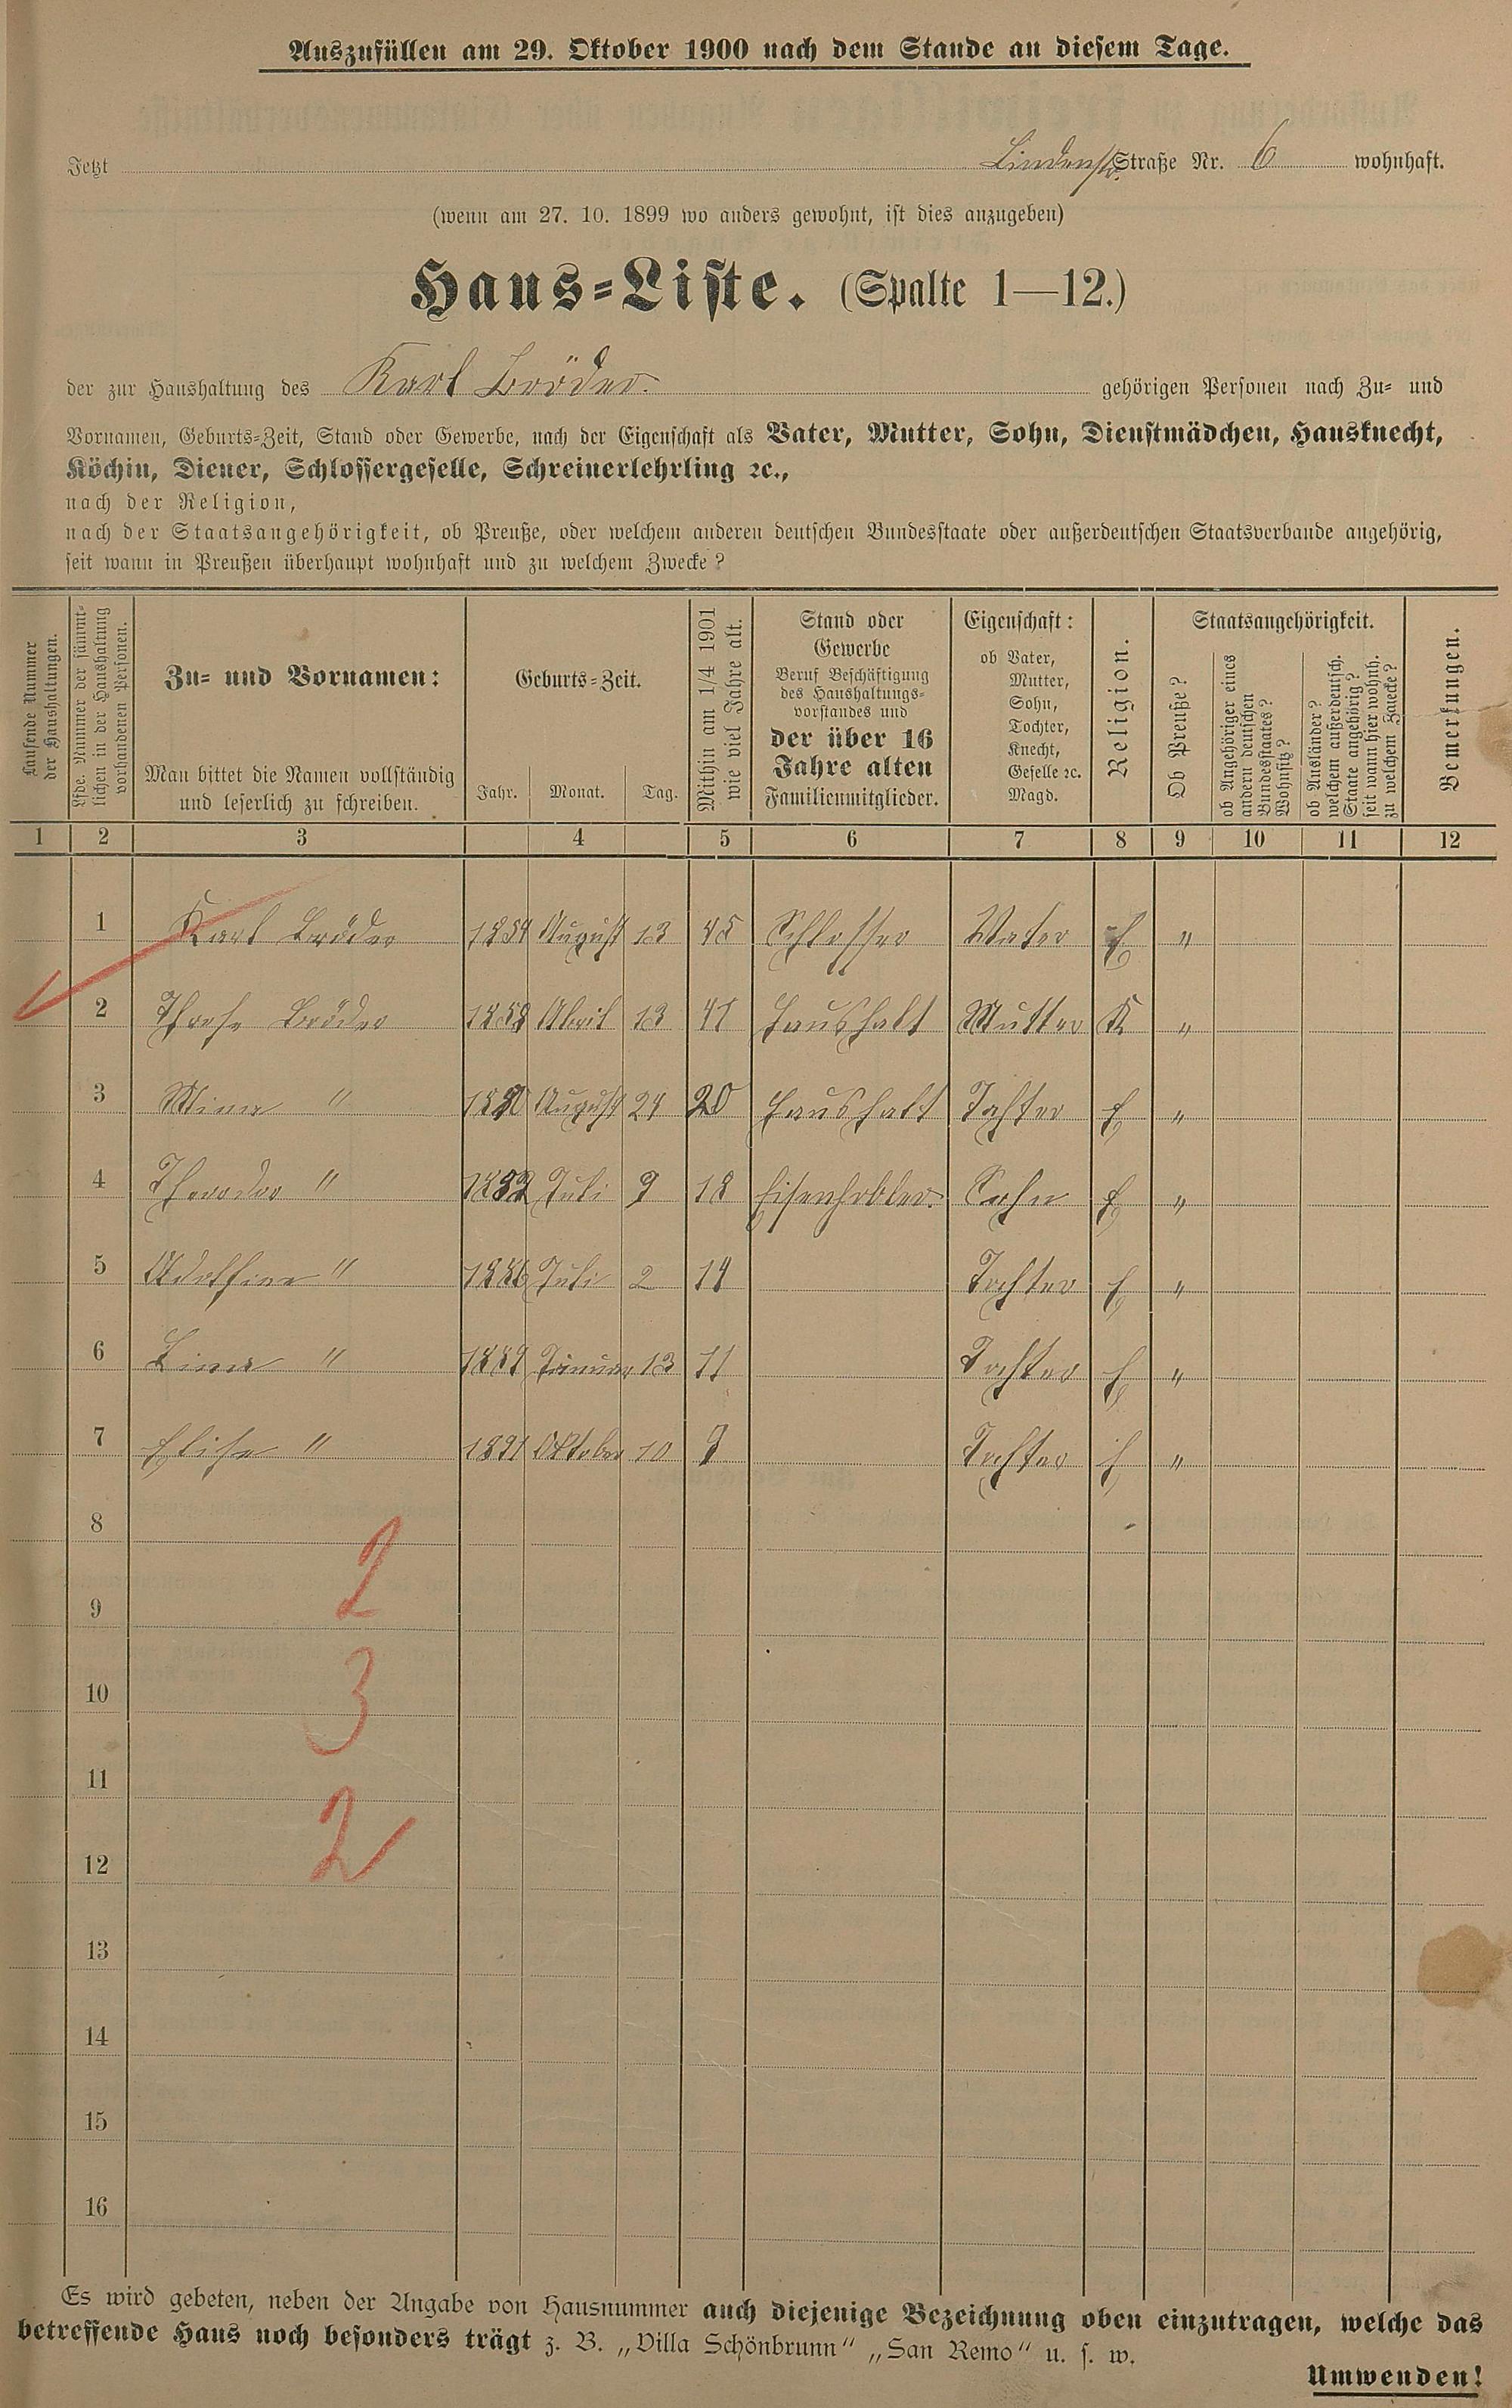 Auszufüllen am 29. Oktober 1900 nach dem Stande an diesem Tage.
Jetzt Lindenstr. Straße Nr. 6 wohnhaft.
(wenn am 27. 10. 1899 wo anders gewohnt, ist dies anzugeben)
Haus-Liste. (Spalte 1—12.)
der zur Haushaltung des Karl Bröder. gehörigen Personen nach Zu- und
Vornamen, Geburts-Zeit, Stand oder Gewerbe, nach der Eigenschaft als Vater, Mutter, Sohn, Dienstmädchen, Hausknecht,
Köchin, Diener, Schlossergeselle, Schreinerlehrling ꝛc.,
nach der Religion,
nach der Staatsangehörigkeit, ob Preuße, oder welchem anderen deutschen Bundesstaate oder außerdeutschen Staatsverbande angehörig,
seit wann in Preußen überhaupt wohnhaft und zu welchem Zwecke?
Laufende Nummer
der Haushaltungen.
Lfde. Nummer der sämmt-
lichen in der Haushaltung
vorhandenen Personen.
Zu- und Vornamen:
Man bittet die Namen vollständig
und leserlich zu schreiben.
Geburts-Zeit.
Jahr. Monat. Tag.
Mithin am 1/4 1901
wie viel Jahre alt.
Stand oder
Gewerbe
Beruf Beschäftigung
des Haushaltungs-
vorstandes und
der über 16
Jahre alten
Familienmitglieder.
Eigenschaft:
ob Vater,
Mutter,
Sohn,
Tochter,
Knecht,
Geselle ꝛc.
Magd.
Religion.
Staatsangehörigkeit.
Ob Preuße?
ob Angehöriger eines
andern deutschen
Bundesstaates?
Wohnsitz?
ob Ausländer?
welchem außerdeutsch.
Staate angehörig?
seit wann hier wohnh.
zu welchem Zwecke?
Bemerkungen.
1 2 3 4 5 6 7 8 9 10 11 12
1 Karl Bröder 1854 August 13 45 Schlosser Vater E "
2 Bröder April 13 41 Haushalt Mutter K "
3 Mina " 1880 August 24 20 Haushalt Tochter E "
4 Theodor " 1882 Juli 9 18 Eisenhobler. Sohn E "
5 Adolfine " 1886 Juli 2 14 Tochter E "
6 Lina " 1889 Januar 13 11 Tochter E "
7 Elise " 1891 Oktober 10 9 Tochter E "
8
2
9
10
3
11
12
2
13
14
15
16
Es wird gebeten, neben der Angabe von Hausnummer auch diejenige Bezeichnung oben einzutragen, welche das
betreffende Haus noch besonders trägt z. B. „Villa Schönbrunn“ „San Remo“ u. s. w.
Umwenden!